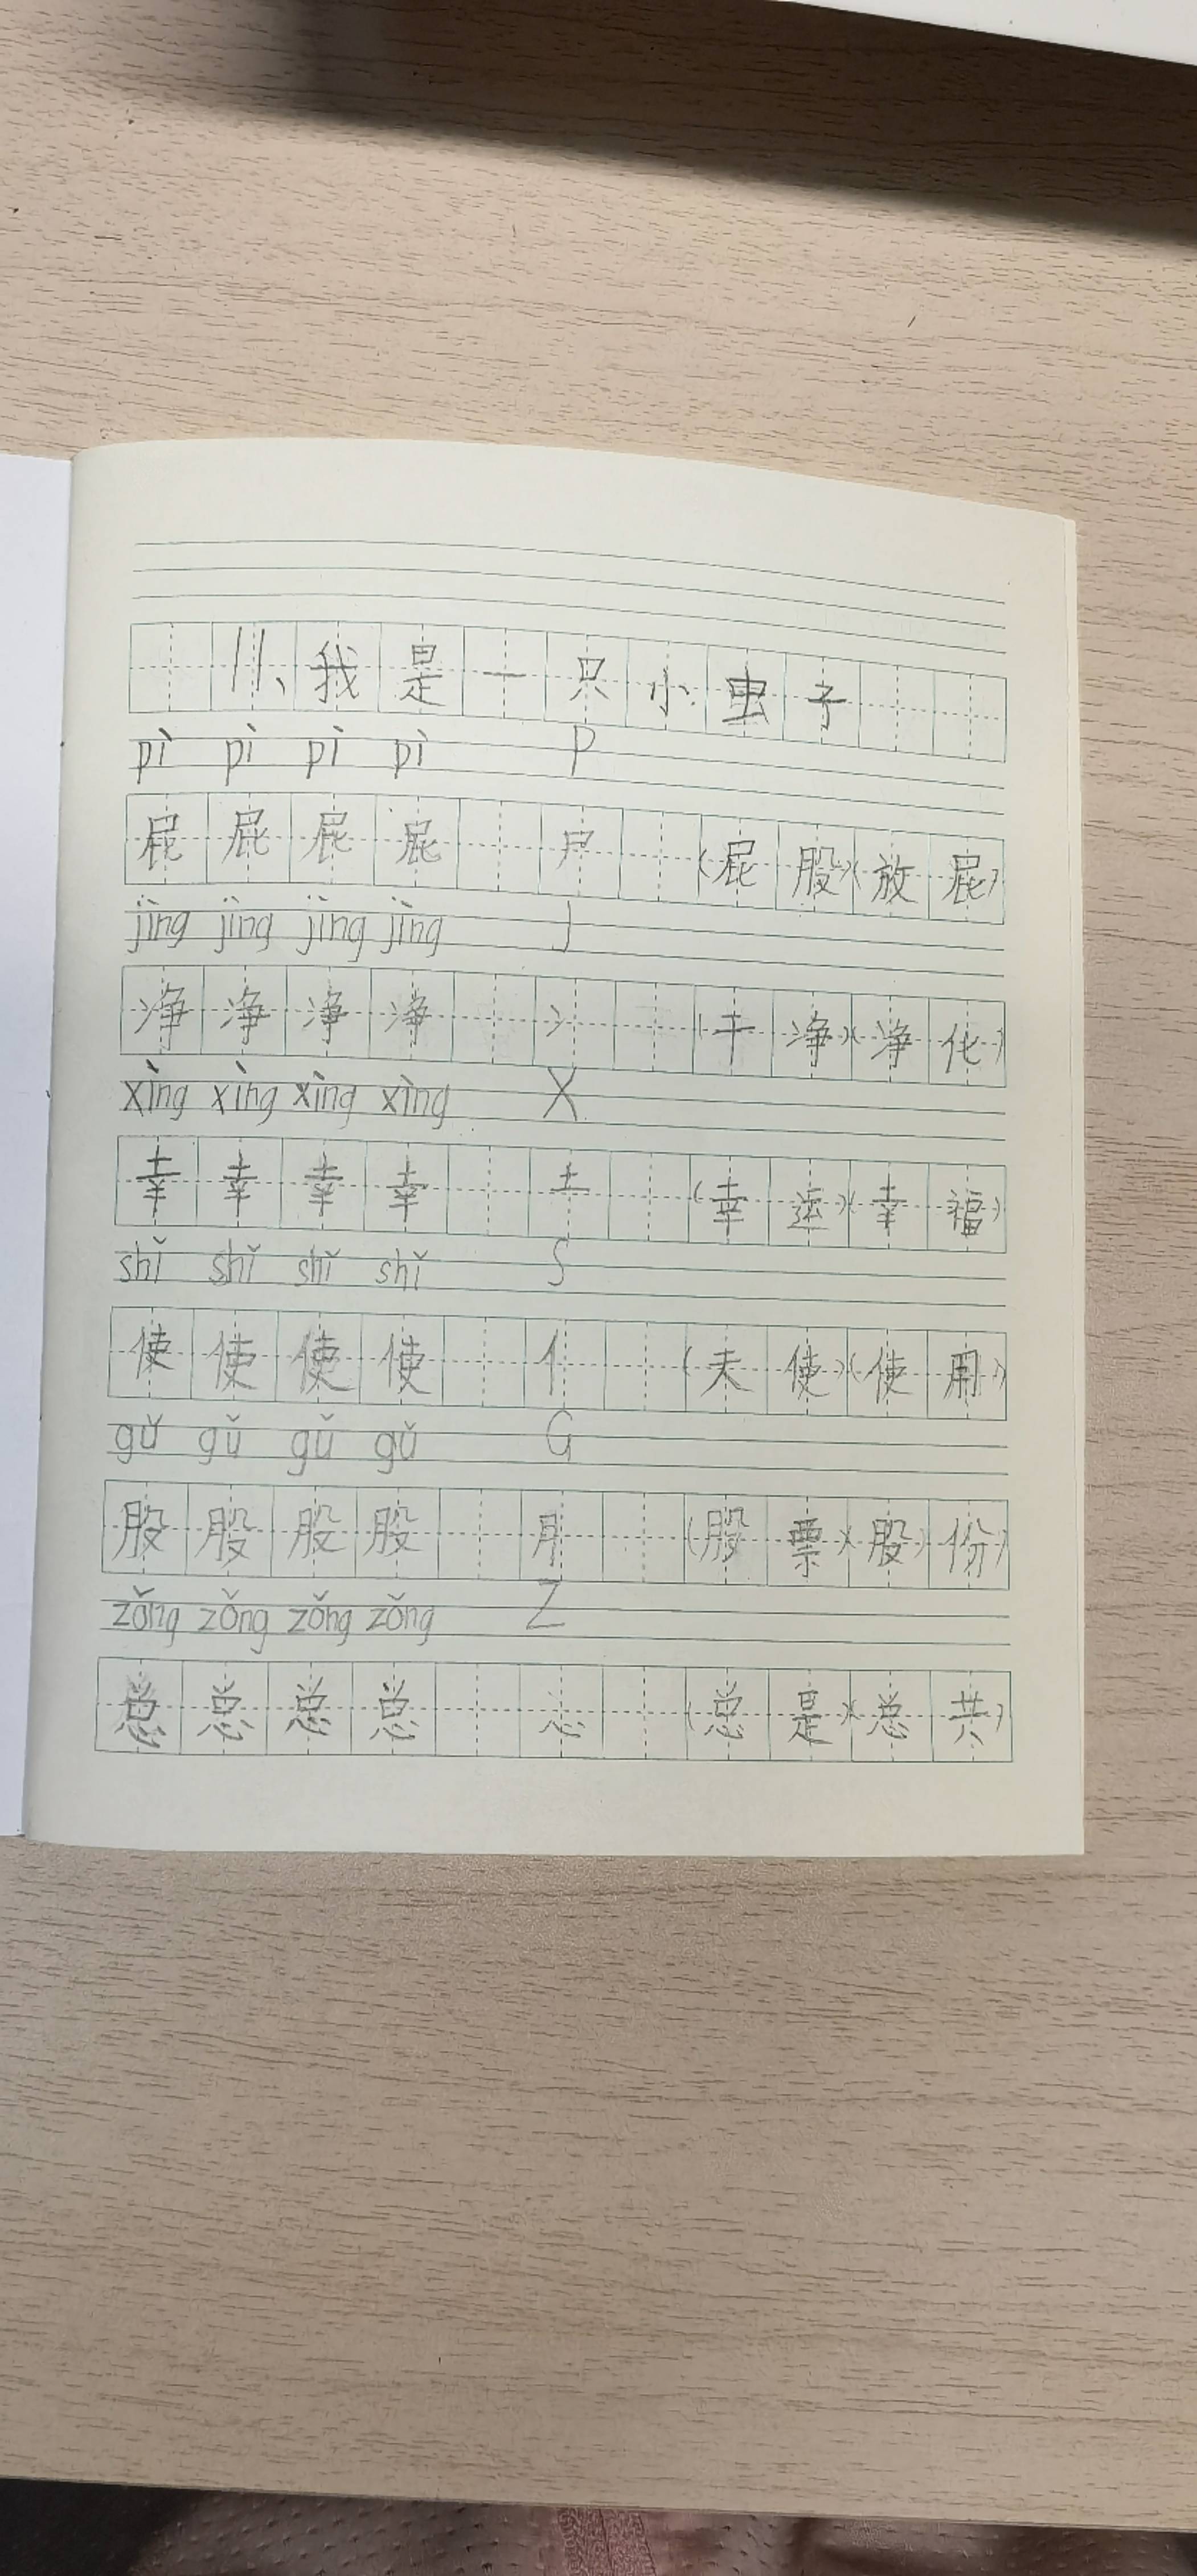 11、我是一只小虫子
pì pì pì pì P
屁 屁 屁 屁 尸 (屁股)(放屁)
jìng jìng jìng jìng J
净 净 净 净 冫 (干净)(净化)
xìng xìng xìng xìng X
幸 幸 幸 幸 土 (幸运)(幸福)
shǐ shǐ shǐ shǐ S
使 使 使 使 亻 (天使)(使用)
gǔ gǔ gǔ gǔ G
股 股 股 股 月 (股票)(股份)
zǒng zǒng zǒng zǒng Z
总 总 总 总 心 (总是)(总共)